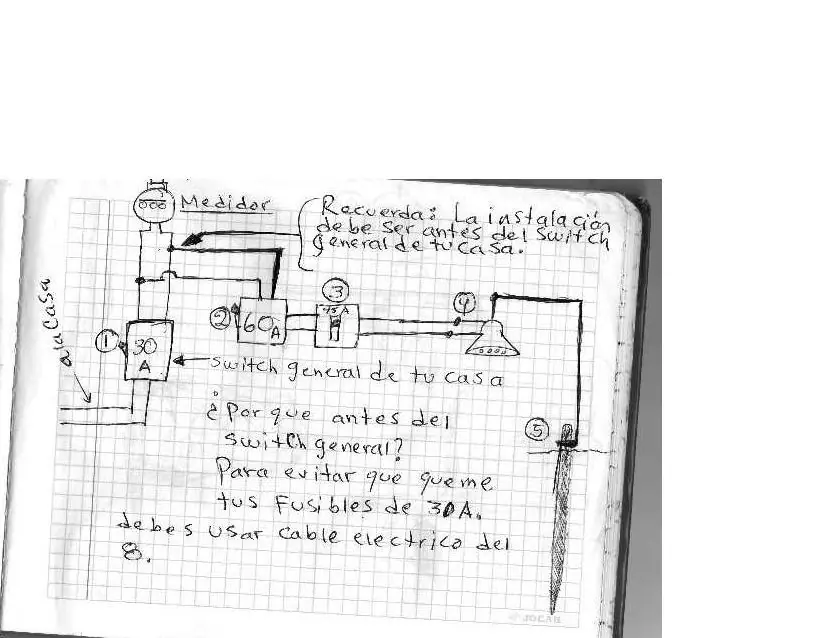 000
Medidor
Recuerda: La instalación
debe ser antes del switch
general de tu casa.
a la casa
3
45 A
4
2
60A
1
30
A
switch general de tu casa
0000
¿Por que antes del
switch general?
Para evitar que queme
tus Fusibles de 30A.
debes usar cable electrico del
8.
5
JOCAR